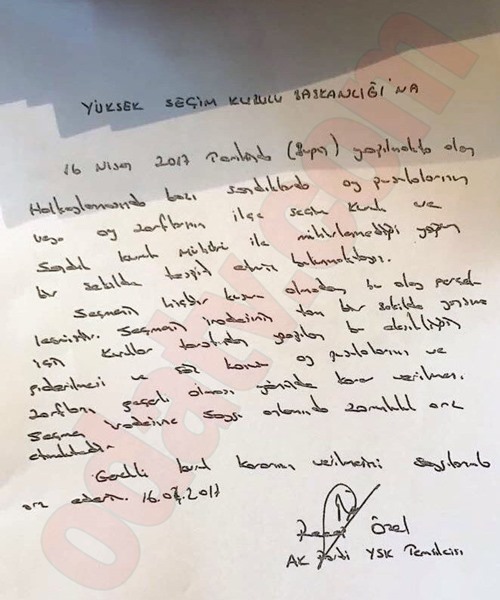 YÜKSEK SEÇİM KURULU BAŞKANLIĞI'NA
16 Nisan 2017 Tarihinde (Bugün) yapılmakta olan
Halkoylamasında bazı sandıklarda oy pusulalarının
veya oy zarflarının ilçe seçim kurulu ve
Sandık kurulu mührü ile mühürlenmediği yaygın
bir şekilde tespit etmiş bulunmaktayız.
Seçmenin hiçbir kusuru olmadan bu olay gerçek
leşmiştir. Seçmen iradesinin tam bir şekilde yansıma
için kurullar tarafından yapılan bu eksikliğin
giderilmesi ve söz konusu oy pusulalarının ve
zarfların geçerli olması yönünde karar verilmesi,
Seçmen iradesine saygı anlamında zorunluluk arz
etmektedir.
Gerekli kararın verilmesini saygılarımla
arz ederim. 16.04.2017
Recep Özel
AK Parti YSK Temsilcisi
odatv.com